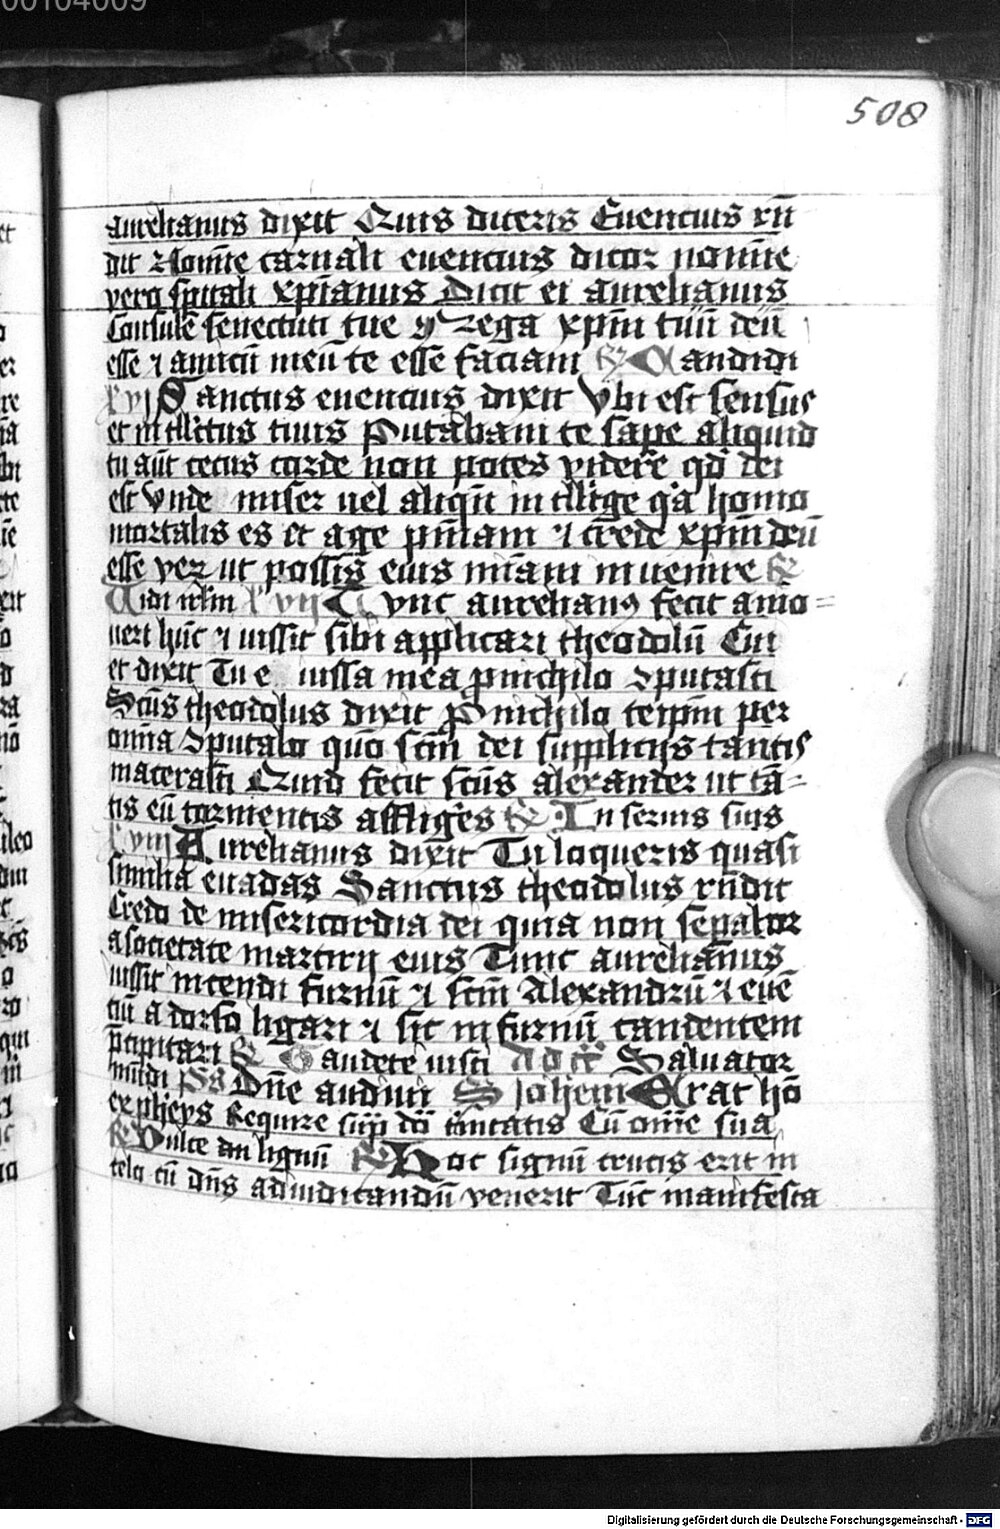 508
aurelianus dixit Quis diceris Euencius rn̄
dit Noīe carnali euencius dicor nomīe
vero spūali xp̄ianus Dicit ei aurelianus
Consule senectuti tue et nega xp̄m tuū deū
esse ⁊ amicū meū te esse faciam ℟ Candidi
lvj Sanctus euencius dixit Vbi est sensus
et intll̄ctus tuus Putabam te sape aliquid
tu aūt cecus corde non potes videre qd̄ dei
est Vnde miser uel aliqn̄ intellige qꝛ homo
mortalis es et age pn̄iam ⁊ crede xp̄m deū
esse ver ut possis eius mīam inuenire ℟
Uidi irl̄m lvij Tunc aurelianꝰ fecit amo=
ueri hūc ⁊ iussit sibi applicari theodolū Cui
et dixit Tu e iussa mea pro nichilo dputasti
Scūs theodolus dixit Pro nichilo teip̄m per
omīa dputabo quō scm̄ dei supplicijs tantis
macerasti Quid fecit scūs alexander ut tā=
tis eū tormentis affliges ℟ In seruis suis
lviij Aurelianus dixit Tu loqueris quasi
similia euadas Sanctus theodolus rn̄dit
Credo de misericordia dei quia non sepabor
a societate martirij eius Tunc aurelianus
iussit incendi furnū ⁊ scm̄ Alexandrū ⁊ euē
tiū a dorso ligari ⁊ sic in furnū candentem
p̄cipitari ℟ Gaudete iusti Saluator
mūdi ps Dn̄e audiui S Johem Erat hō
ex phēys Require dō tn̄itatis Cū om̄e sua
℟ Dulce an lignū ℟ Hoc signū crucis erit in
celo cū dn̄s ad iudicandū venerit Tūc manifesta
Digitalisierung gefördert durch die Deutsche Forschungsgemeinschaft - DFG